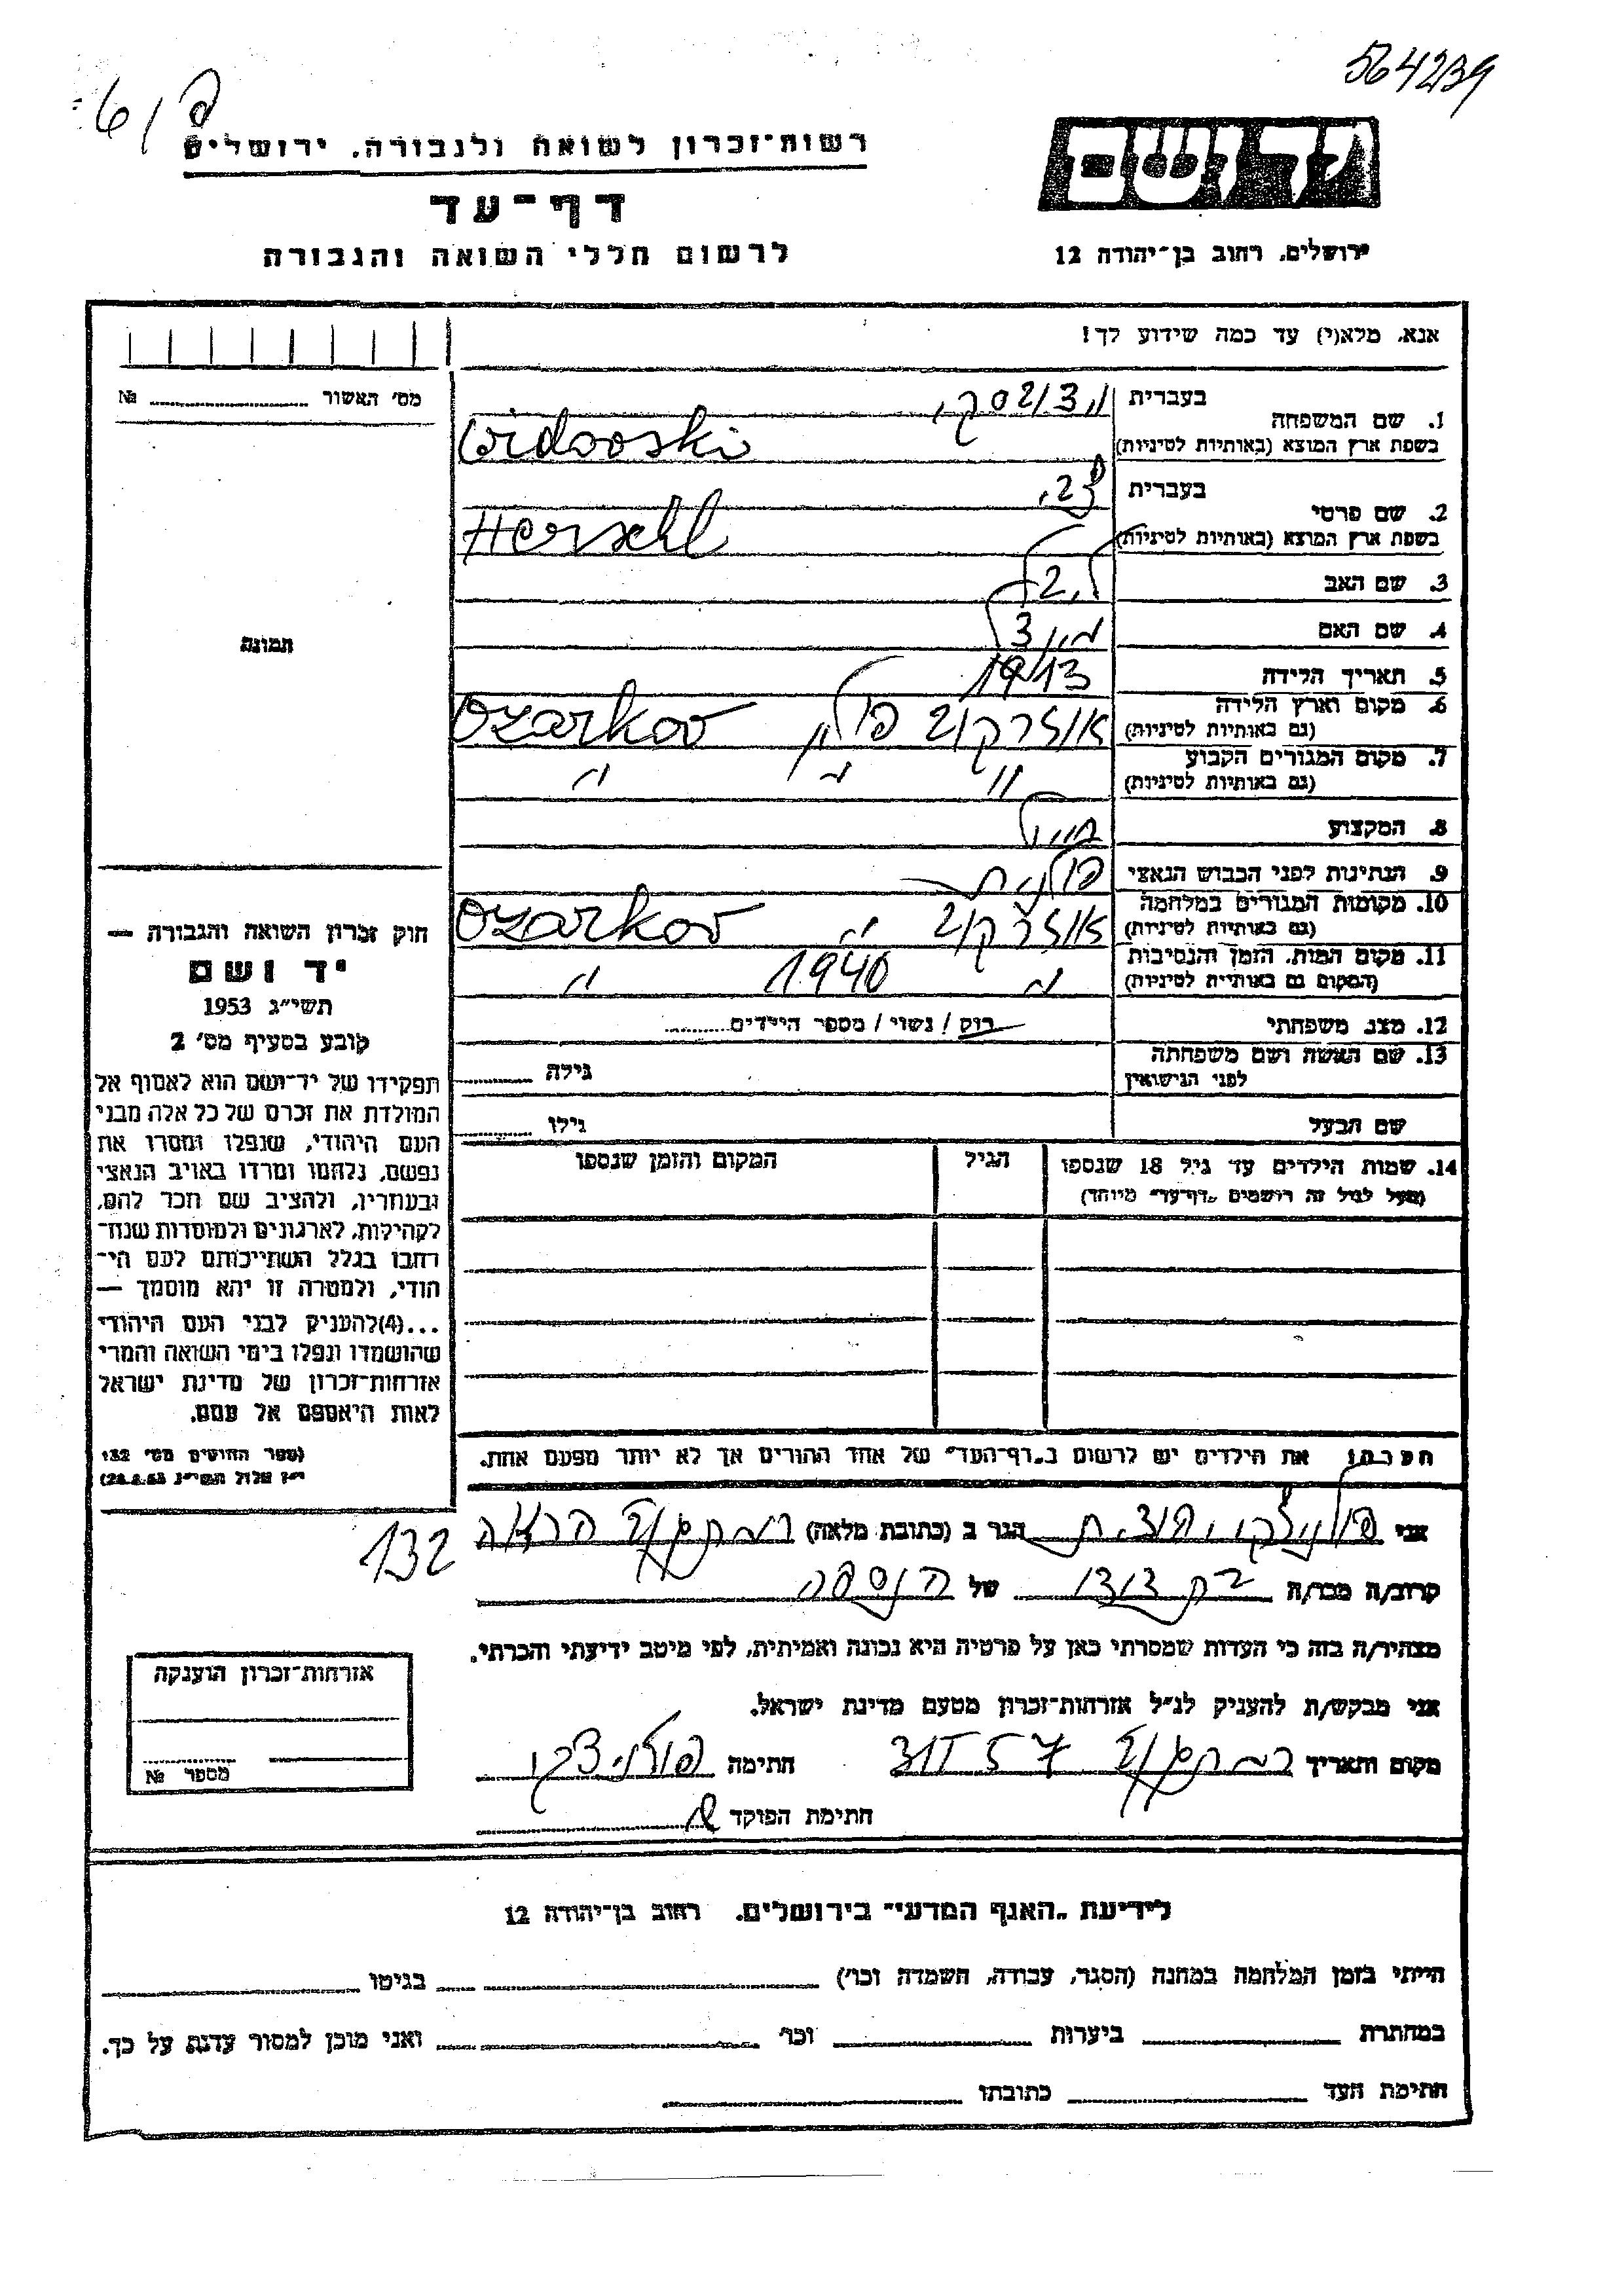 564239
רשות-זכרון לשואה ולגבורה, ירושלים
דף-עד
לרשום חללי השואה והגבורה
יד ושם
ירושלים, רחוב בן-יהודה 12
אנא, מלא(י) עד כמה שידוע לך!
מס׳ האשור № 
1. שם המשפחה
בעברית
בשפת ארץ המוצא (באותיות לטיניות)
Widovski
2. שם פרטי
בעברית צבי
בשפת ארץ המוצא (באותיות לטיניות)
Herschl
3. שם האב
4. שם האם
5. תאריך הלידה 1913
6. מקום וארץ הלידה
(גם באותיות לטיניות)
אוזרקוב פולין Ozarkov
7. מקום המגורים הקבוע
(גם באותיות לטיניות)
" " "
8. המקצוע חייט
9. הנתינות לפני הכבוש הנאצי פולנית
10. מקומות המגורים במלחמה
(גם באותיות לטיניות)
אוזרקוב " Ozarkov
11. מקום המות, הזמן והנסיבות
(המקום גם באותיות לטיניות)
" 1940 "
12. מצב משפחתי רוק / נשוי / מספר הילדים
13. שם האשה ושם משפחתה
לפני הנישואין
גילה
שם הבעל גילו
14. שמות הילדים עד גיל 18 שנספו
(מעל לגיל זה רושמים "דף-עד" מיוחד)
הגיל
המקום והזמן שנספו
את הילדים יש לרשום ב"דף-העד" של אחד ההורים אך לא יותר מפעם אחת.
תמונה
חוק זכרון השואה והגבורה —
יד ושם
תשי״ג 1953
קובע בסעיף מס׳ 2
תפקידו של יד-ושם הוא לאסוף אל
המולדת את זכרם של כל אלה מבני
העם היהודי, שנפלו ומסרו את
נפשם, נלחמו ומרדו באויב הנאצי
ובעוזריו, ולהציב שם וזכר להם,
לקהילות, לארגונים ולמוסדות שנח-
רבו בגלל השתייכותם לעם הי-
הודי, ולמטרה זו יהא מוסמך —
...(4) להעניק לבני העם היהודי
שהושמדו ונפלו בימי השואה והמרי
אזרחות-זכרון של מדינת ישראל
לאות היאספם אל עמם.
(ספר החוקים מס׳ 132
י״ז אלול תשי״ג 28.8.53)
132
אני הגר ב (כתובת מלאה)
קרוב/ה מכר/ה של הנספה
מצהיר/ה בזה כי העדות שמסרתי כאן על פרטיה היא נכונה ואמיתית, לפי מיטב ידיעתי והכרתי.
אני מבקש/ת להעניק לנ״ל אזרחות-זכרון מטעם מדינת ישראל.
מקום ותאריך חתימה
חתימת הפוקד
אזרחות-זכרון הוענקה
מספר №
לידיעת "האגף המדעי" בירושלים, רחוב בן-יהודה 12
הייתי בזמן המלחמה במחנה (הסגר, עבודה, השמדה וכו׳) בגיטו
במחתרת ביערות וכו׳ ואני מוכן למסור עדות על כך.
חתימת העד כתובתו